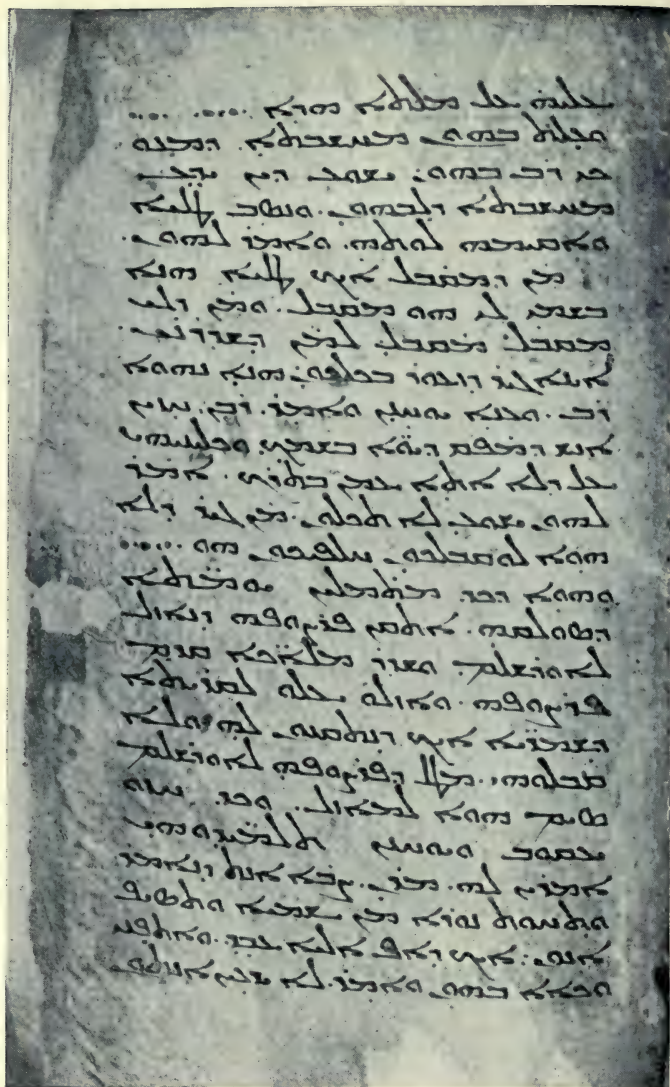 ܥܠ ܡܠܬܐ ܗܕܐ
ܘܥܠܬ ܒܗܘܢ ܡܚܫܒܬܐ. ܕܡܢܘ
ܪܒ ܒܗܘܢ. ܝܫܘܥ ܕܝܢ ܝܕܥ
ܡܚܫܒܬܐ ܕܠܒܗܘܢ. ܘܢܣܒ ܛܠܝܐ
ܘܐܩܝܡܗ ܠܘܬܗ. ܘܐܡܪ ܠܗܘܢ.
ܡܢ ܕܡܩܒܠ ܐܝܟ ܛܠܝܐ ܗܢܐ
ܒܫܡܝ ܠܝ ܗܘ ܡܩܒܠ. ܘܡܢ ܕܠܝ
ܡܩܒܠ ܡܩܒܠ ܠܡܢ ܕܫܕܪܢܝ.
ܐܝܢܐ ܓܝܪ ܕܙܥܘܪ ܒܟܠܟܘܢ ܗܢܐ ܢܗܘܐ
ܪܒ. ܘܥܢܐ ܝܘܚܢܢ ܘܐܡܪ. ܪܒܢ. ܚܙܝܢ
ܐܢܫ ܕܡܦܩ ܕܝܘܐ ܒܫܡܟ ܘܟܠܝܢܝܗܝ
ܥܠ ܕܠܐ ܐܬܐ ܥܡܢ ܒܬܪܟ. ܐܡܪ
ܠܗܘܢ ܝܫܘܥ ܠܐ ܬܟܠܘܢ. ܡܢ ܓܝܪ ܕܠܐ
ܗܘܐ ܠܘܩܒܠܟܘܢ ܚܠܦܝܟܘܢ ܗܘ
ܘܗܘܐ ܕܟܕ ܡܬܡܠܝܢ ܝܘܡܬܐ
ܕܣܘܠܩܗ. ܐܬܩܢ ܦܪܨܘܦܗ ܕܢܐܙܠ
ܠܐܘܪܫܠܡ. ܘܫܕܪ ܡܠܐܟܐ ܩܕܡ
ܦܪܨܘܦܗ. ܘܐܙܠܘ ܥܠܘ ܠܩܪܝܬܐ
ܕܫܡܪܝܐ ܐܝܟ ܕܢܬܩܢܘܢ ܠܗ ܘܠܐ
ܩܒܠܘܗܝ. ܡܛܠ ܕܦܪܨܘܦܗ ܠܐܘܪܫܠܡ
ܣܝܡ ܗܘܐ ܠܡܐܙܠ. ܘܟܕ ܚܙܘ
ܝܥܩܘܒ ܘܝܘܚܢܢ ܬܠܡܝܕܘܗܝ
ܐܡܪܝܢ ܠܗ. ܡܪܢ. ܨܒܐ ܐܢܬ ܕܢܐܡܪ
ܘܬܚܘܬ ܢܘܪܐ ܡܢ ܫܡܝܐ ܘܬܣܝܦ
ܐܢܘܢ. ܐܝܟ ܕܐܦ ܐܠܝܐ ܥܒܕ. ܘܐܬܦܢܝ
ܘܟܐܐ ܒܗܘܢ ܘܐܡܪ. ܠܐ ܝܕܥܝܢ ܐܢܬܘܢ